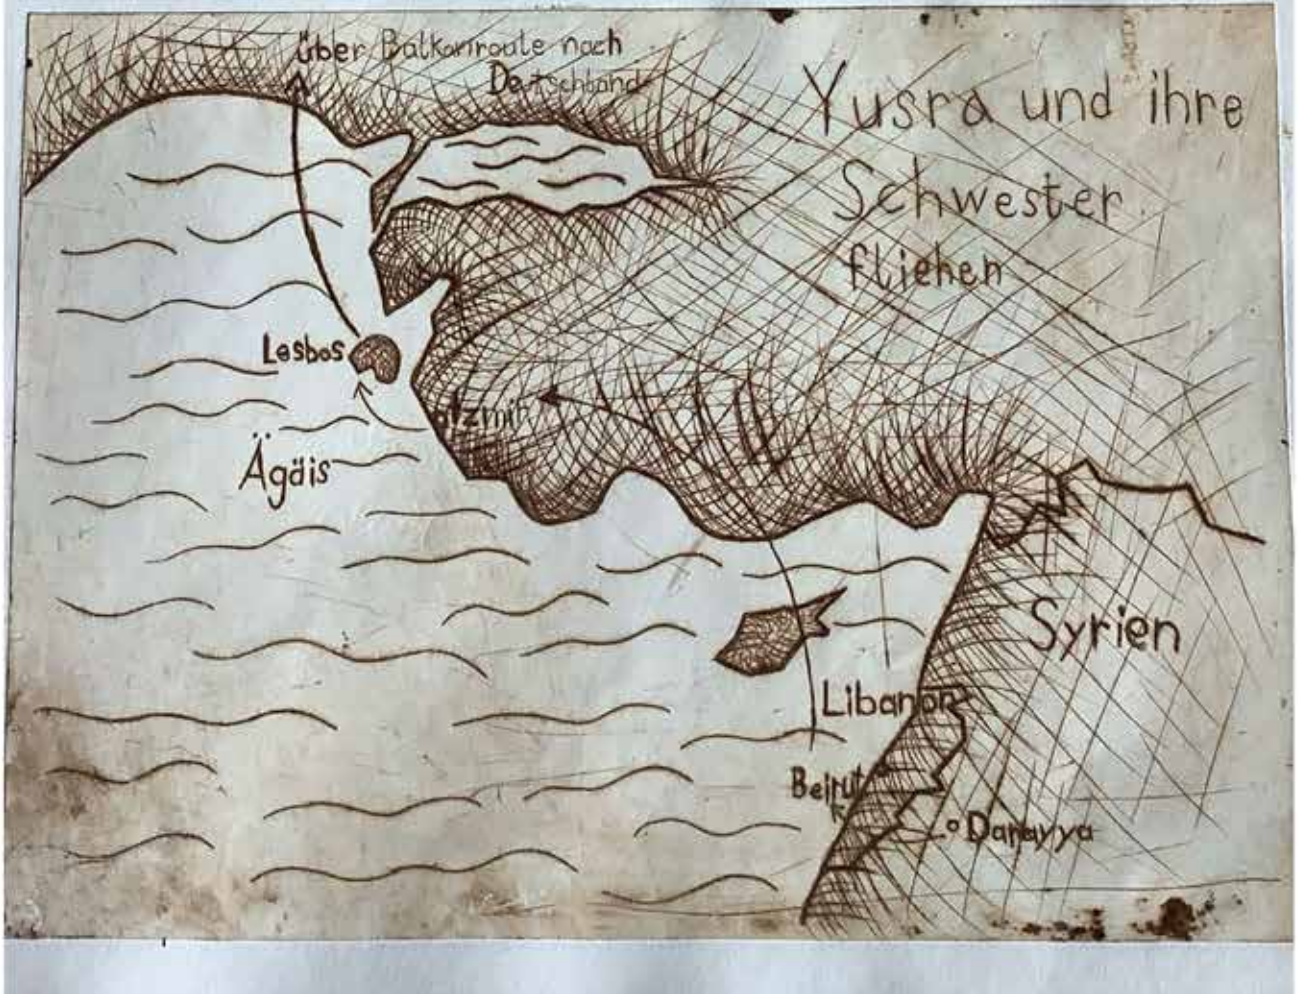 über Balkanroute nach
Deutschland
Yusra und ihre
Schwester
fliehen
Lesbos
Izmir
Ägäis
Syrien
Libanon
Beirut
Darayya